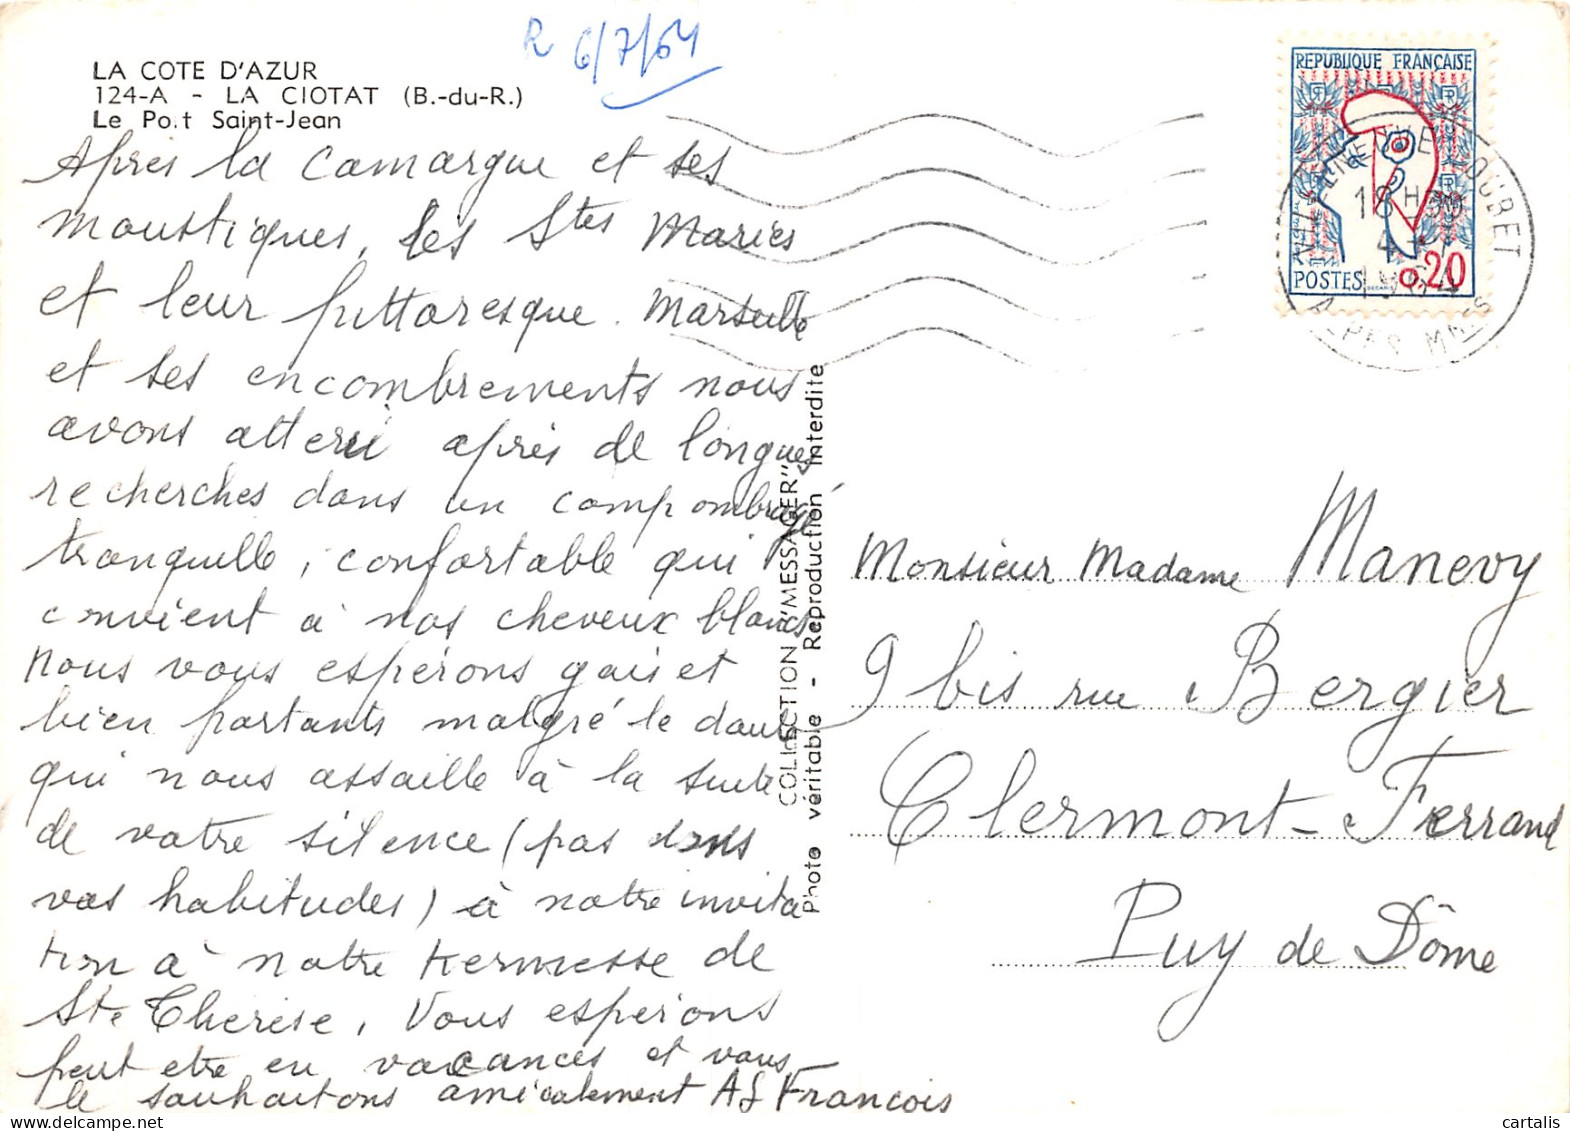 R 6/7/64
LA COTE D'AZUR
124-A - LA CIOTAT (B.-du-R.)
Le Port Saint-Jean
Après la Camargue et ses
moustiques, les Stes Maries
et leur pittoresque. Marseille
et ses encombrements nous
avons atterri après de longues
recherches dans un camp ombragé
tranquille, confortable qui
convient à nos cheveux blancs
Nous vous espérons gais et
bien portants malgré le doute
qui nous assaille à la suite
de votre silence (pas dans
vos habitudes) à notre invita
tion à notre Kermesse de
Ste Therese, Vous espérons
peut etre en vacances et vous
le souhaitons amicalement AG Francois
COLLECTION "MESSAGER"
Photo véritable - Reproduction interdite
REPUBLIQUE FRANÇAISE
POSTES
0,20
DECARIS
VILLENEUVE LOUBET
18H30
4-7
1964
ALPES MMES
Monsieur Madame Manevy
9 bis rue Bergier
Clermont-Ferrand
Puy de Dôme
cartalis